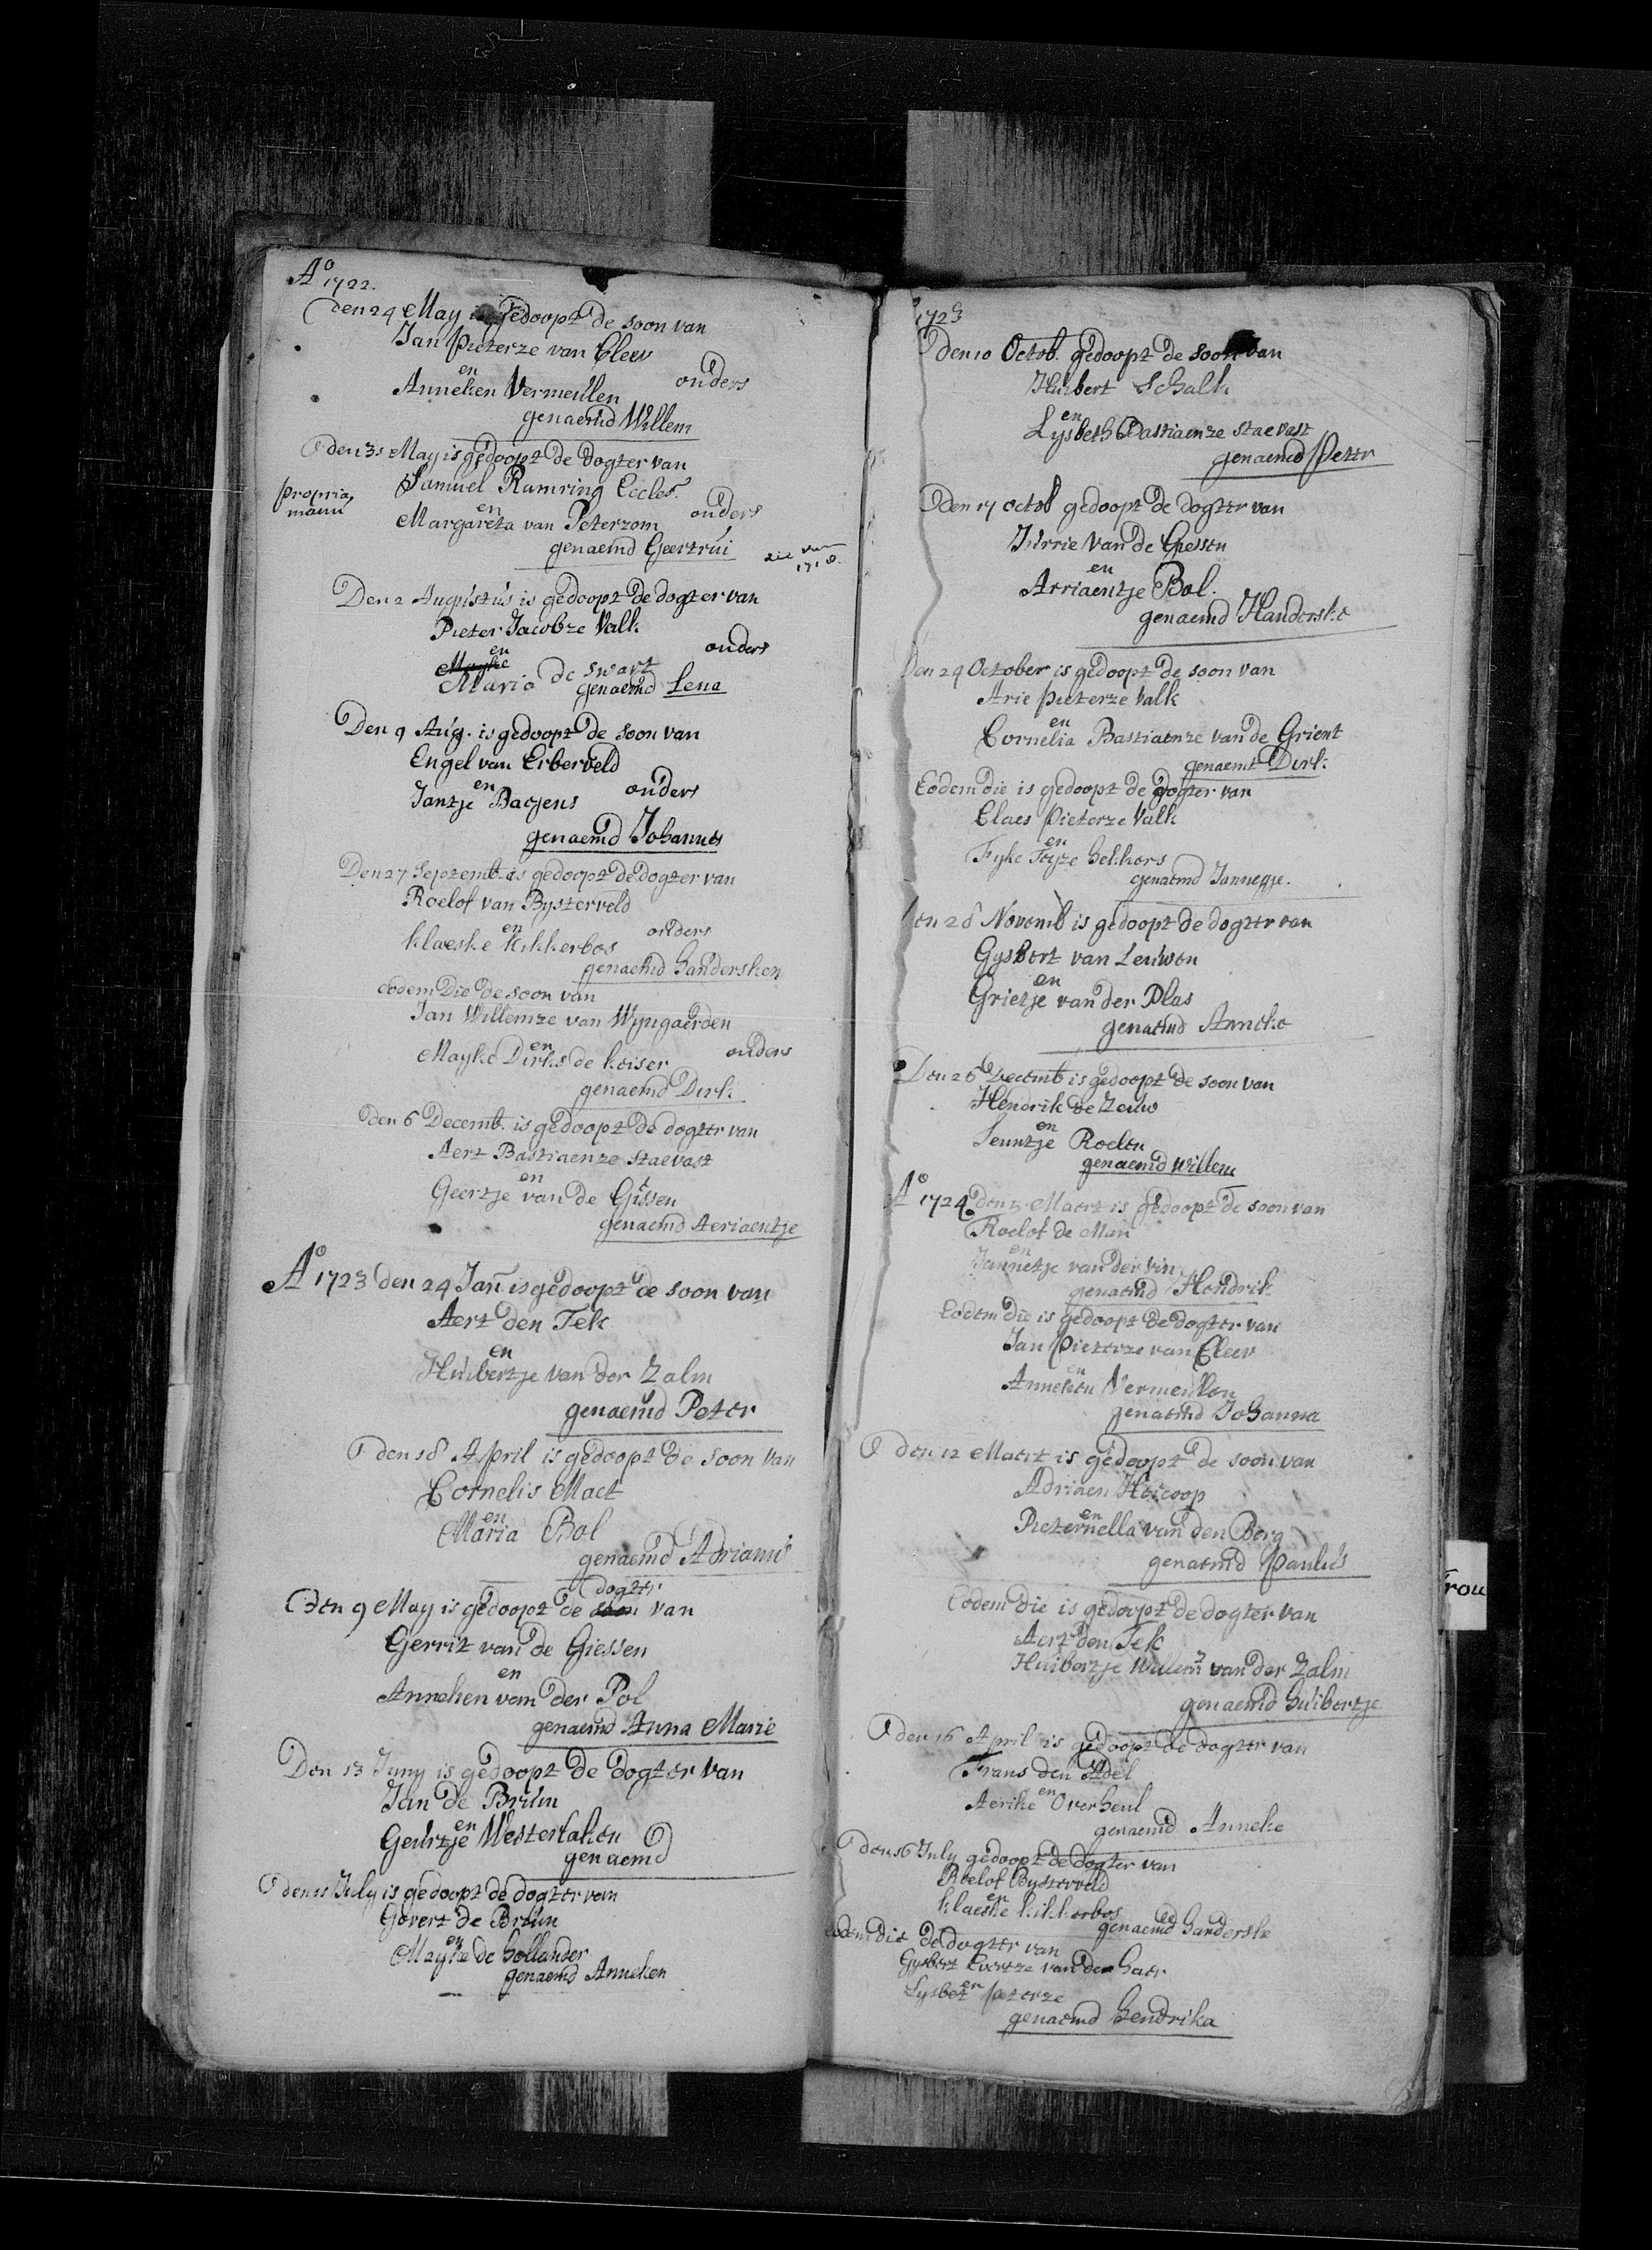 Ao 1722.
den 24 May is gedoopt de soon van
Jan Pieterze van Cleev
en
Anneken Vermeulen ouders
genaemd Willem
den 31 May is gedoopt de dogter van
Samuel Ramring Eccles.
propria manu
en
Margareta van Peterzom ouders
genaemd Geertrui
1718.
Den 2 Augustus is gedoopt de dogter van
Pieter Jacobze Valk
en ouders
Mayke
Maria de Swart
genaemd Lena
Den 9 Aug. is gedoopt de soon van
Engel van Erberveld
en
Jantje Baejens ouders
genaemd Johannes
Den 27 Septemb. is gedoopt de dogter van
Roelof van Bysterveld
en
Klaeske Kikkerbos ouders
genaemd handersken
eodem Die de soon van
Jan Willemze van Wyngaerden
en
Mayke Dirks de Keiser ouders
genaemd Dirk
den 6 Decemb. is gedoopt de dogter van
Aert Bastiaenze Staevast
en
Geertje van de Gissen
genaemd Aeriaentje
Ao 1723 den 24 Jan is gedoopt de soon van
Aert den Tek
en
Huibertje van der Zalm
genaemd Peter
den 18 April is gedoopt de soon van
Cornelis Maet
en
Maria Bol
genaemd Adrianus
dogter
den 9 May is gedoopt de soon van
Gerrit van de Giessen
en
Anneken van der Pol
genaemd Anna Marie
Den 13 Juny is gedoopt de dogter van
Jan de Bruin
en
Geurtje Westerlaken
genaemd
den 11 July is gedoopt de dogter van
Govert de Bruin
en
Mayke de hollander
genaemd Anneken
1723
den 10 Octob. gedoopt de soon van
Huibert Schalk
en
Lysbeth Bastiaenze staevast
genaemd Peter
Den 17 octob gedoopt de dogter van
Jurrie Van de Giessen
en
Arriaentje Bol.
genaemd Handerske
Den 24 October is gedoopt de soon van
Arie Pieterze Valk
en
Cornelia Bastiaenze van de Grient
genaemt Dirk.
Eodem die is gedoopt de dogter van
Claes Pieterze Valk
en
Fyke Teyze hekkers
genaemd Jannegje.
Den 28 Novemb is gedoopt de dogter van
Gysbert van Leuwen
en
Grietje van der Plas
genaemd Anneke
Den 26 Decemb is gedoopt de soon van
Hendrik de Zeuw
en
Leuntje Roelen
genaemd Willem
Ao 1724 den 5 Maert is gedoopt de soon van
Roelof de Man
en
Jannetje van der Vin
genaemd Hendrik
Eodem die is gedoopt de dogter van
Jan Pieterze van Cleev
en
Anneken Vermeulen
genaemd Johanna
den 12 Maert is gedoopt de soon van
Adriaen Heicoop
en
Pieternella van den Berg
genaemd Paulus
Eodem die is gedoopt de dogter van
Aert den Tek
Huibertje Willemz van der Zalm
genaemd huibertje
den 16 April is gedoopt de dogter van
Frans den Adel
en
Aerike Overheul
genaemd Anneke
den 16 July gedoopt de dogter van
Roelof Bysterveld
en
Klaeske Kikkerbos
genaemd handerske
eodem die de dogter van
Gysbert Evertze van der haer
en
Lysbet peterze
genaemd hendrika